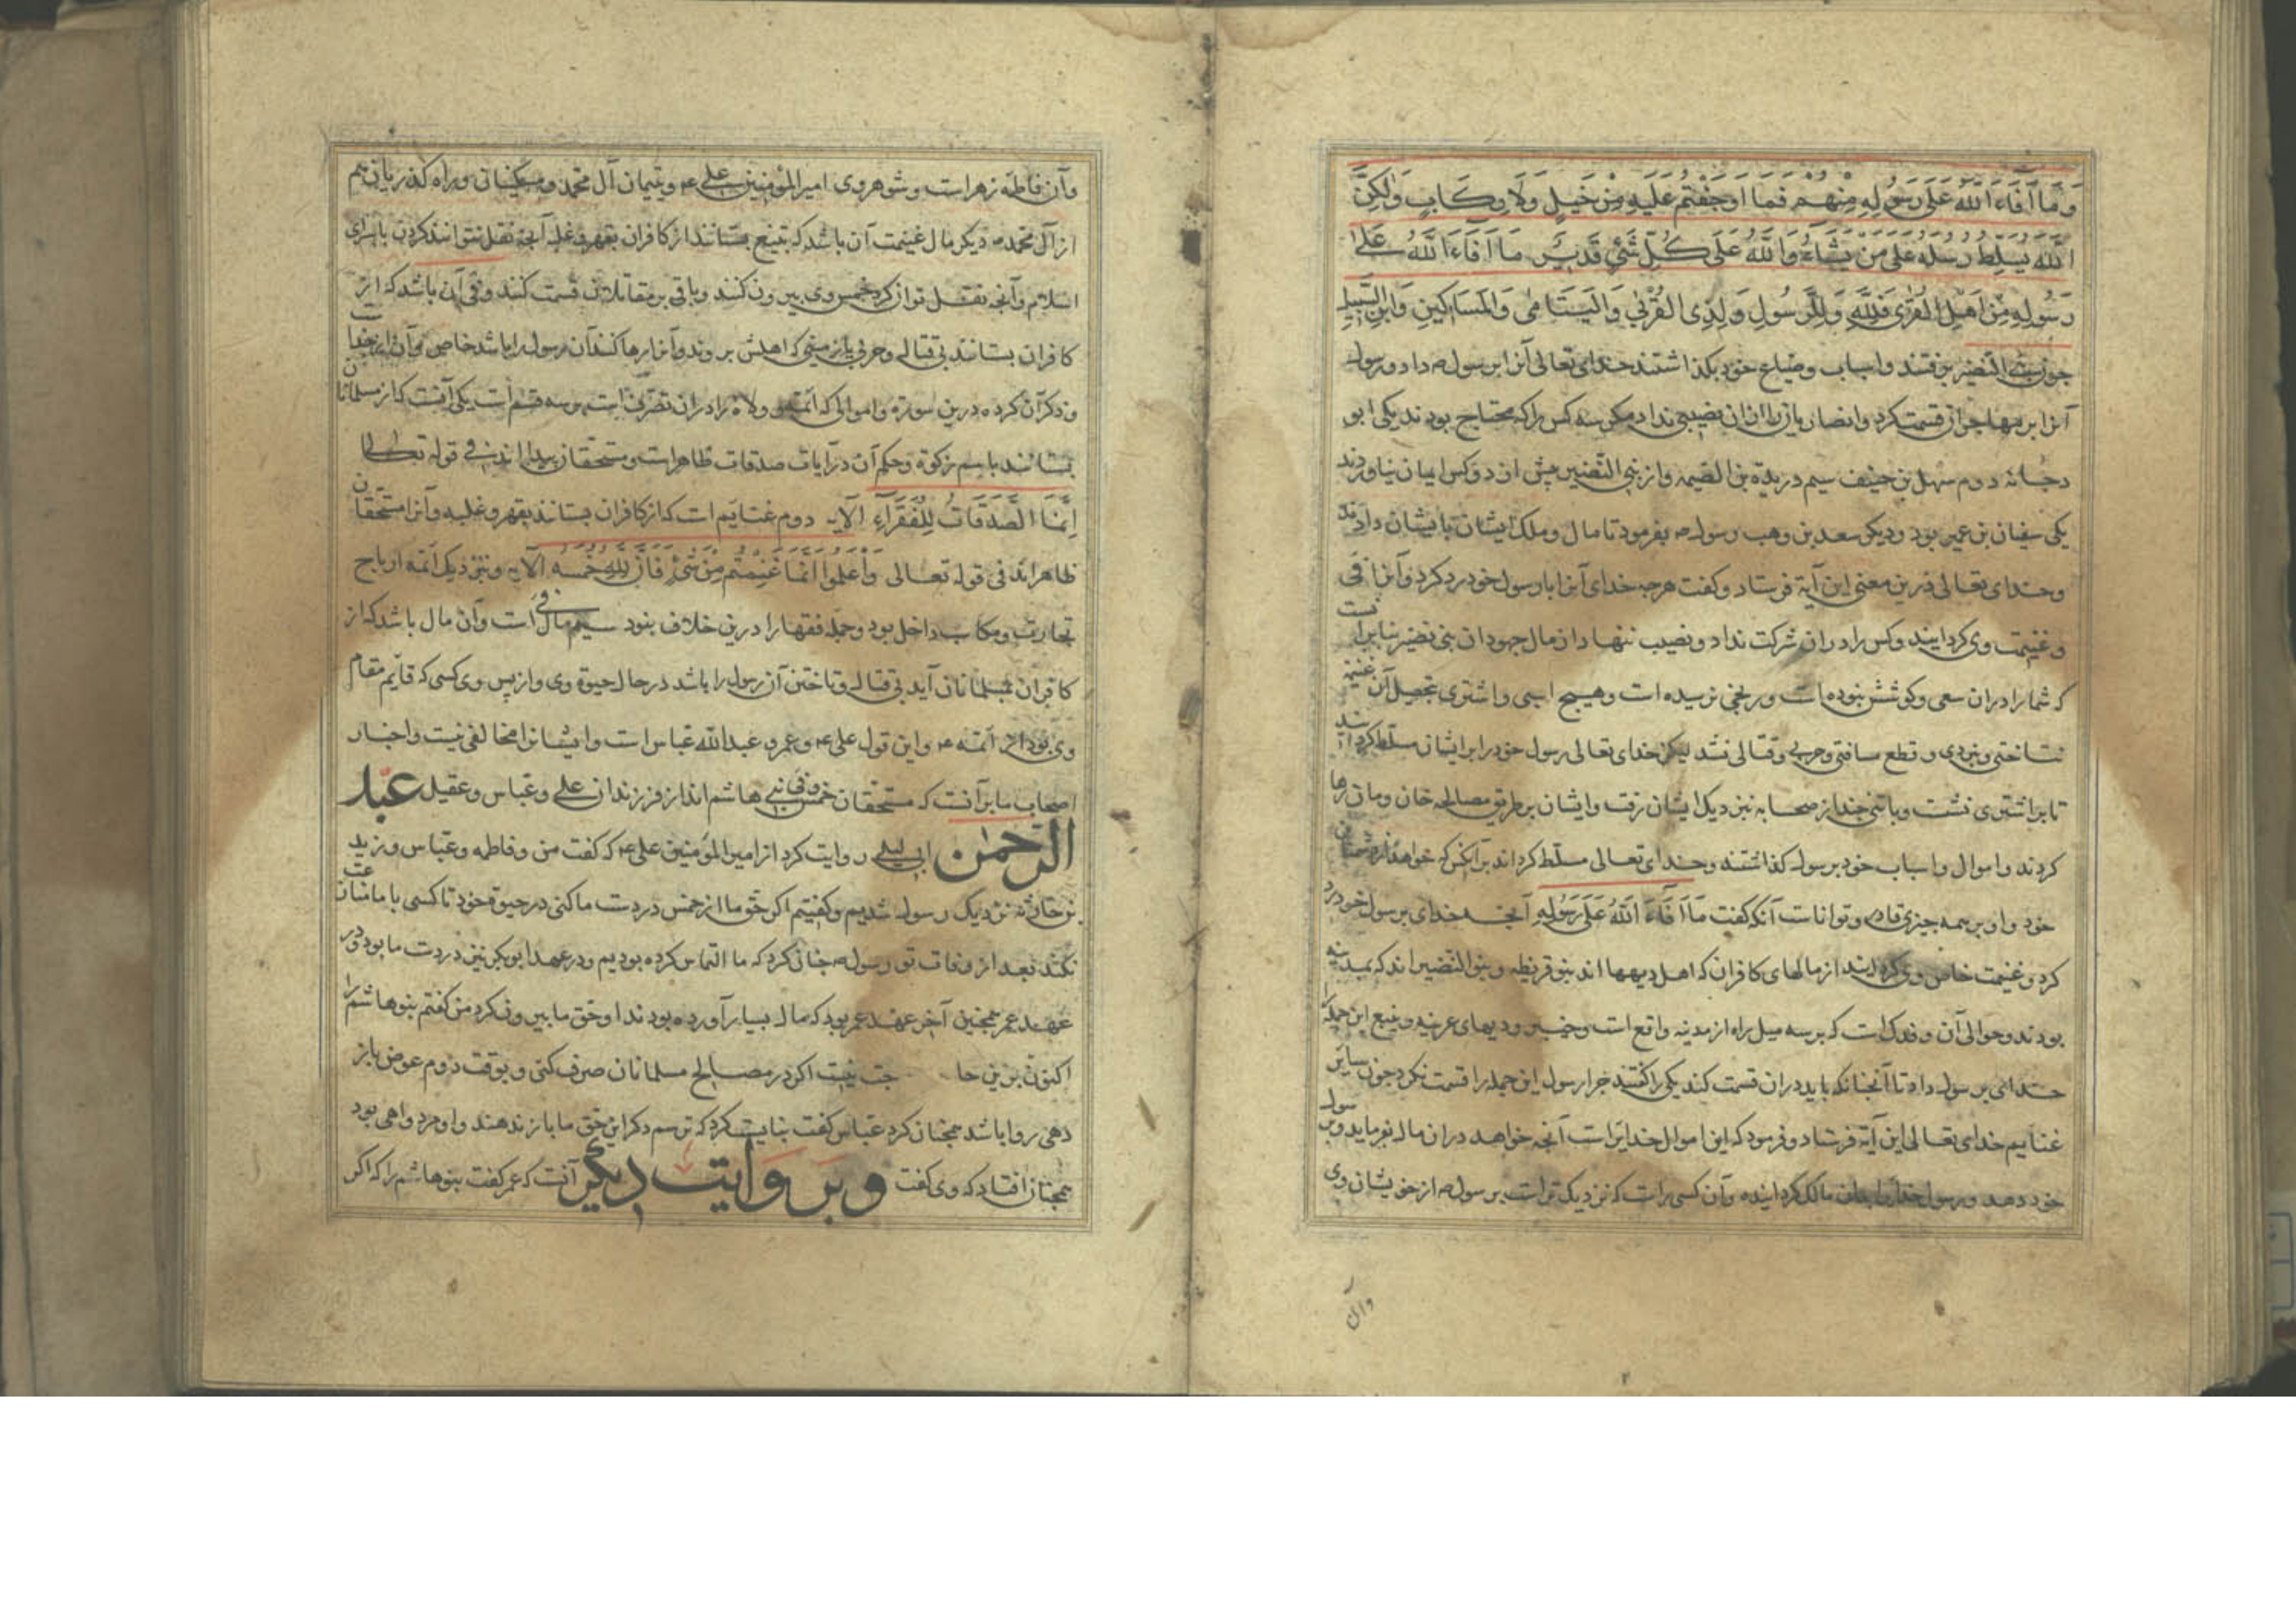 وَمَا أَفَاءَ اللّٰهُ عَلَى رَسُولِهِ مِنْهُمْ فَمَا اَوْجَفْتُمْ عَلَيْهِ مِنْ خَيْلٍ وَلَا رِكَابٍ وَلٰكِنَّ
اللّٰهَ يُسَلِّطُ رُسُلَهُ عَلَى مَنْ يَشَاءُ وَاللّٰهُ عَلَى كُلِّ شَيْءٍ قَدِيرٌ مَا اَفَاءَ اللّٰهُ عَلَىٰ
رَسُولِهِ مِنْ اَهْلِ الْقُرَى فَلِلّٰهِ وَلِلرَّسُولِ وَلِذِي الْقُرْبَى وَالْيَتَامٰى وَالْمَسَاكِينِ وَابْنِ السَّبِيلِ
چون بنی النضیر برفتند واسباب وضیاع خود بکذاشتند خدای تعالی آنرا برسول داد ورسول
آنرا بر مهاجران قسمت کرد وانصاریان را ازان نصیبی نداد مکر سه کس را که محتاج بودند یکی ابو
دجانه دوم سهل بن حنیف سیم در بن الصمه واز بنی النضیر بیش از دو کس ایمان نیاوردند
یکی سفیان بن عمیر بود ودیکر سعد بن وهب رسول بفرمود تا مال وملک ایشان بایشان دادند
وخدای تعالی درین معنی این آیة فرستاد وکفت هرچه خدای آنرا با رسول خود رد کرد وآنرا فی
وغنیمت وی کردانید وکس را دران شرکت نداد ونصیب ننهاد از مال جهودان بنی نضیر بنابر
که شما را دران سعی وکوشش نبوده است ورنجی نرسیده است وهیچ اسبی واشتری بتحصیل آن غنیمة
نتاختی ونبردی وقطع مسافتی وحربی وقتالی نشد لیکن خدای تعالی رسول خود را بر ایشان مسلط کرد
تا بر اشتری نشست وبا تنی چند از صحابه بنزدیک ایشان رفت وایشان بر طریق مصالحه خان ومان رها
کردند واموال واسباب خود برسول کذاشتند وخدای تعالی مسلط کرداند برآنکس که خواهد از دشمنان
خود واو بر همه چیزی قادر وتواناست آنکه کفت مَا اَفَاءَ اللّٰهُ عَلَى رَسُولِهِ آنچه خدای بر رسول خود رد
کرد وغنیمت خاص وی کردانید از مالهای کافران که اهل دیهها اند بنو قریظه وبنو النضیر اند که بمدینه
بودند وحوالی آن وفدک است که بر سه میل راه از مدینه واقع است وخیبر ودیهای عرینه وینبع این جمله را
خدای برسول داد تا آنچنانکه باید دران قسمت کند یکی را کفتند چرا رسول این جمله را قسمت نکرد چون سایر
غنایم خدای تعالی این آیة فرستاد وفرمود که این اموال خدایراست آنچه خواهد دران مال بفرماید وبرسول
خود دهد ورسول مالک کرداینده وآن کسی راست که نزدیک تراست برسول از خویشان وی
وآن
وآن فاطمه زهراست وشوهر وی امیرالمؤمنین علی ع ویتیمان آل محمد ومسکینان وراه کذریان هم
از آل محمد دیکر مال غنیمت آن باشد که بتیغ بستانند از کافران بقهر وغلبه آنچه نقل نتوانند کردن با سرای
اسلام وآنچه نقل توان کرد خمس وی بیرون کنند وباقی بر مقاتلان قسمت کنند وفی آن باشد که از
کافران بستانند بی قتالی وحربی یا زمینی که اهلش بروند وآنرا رها کنند آن رسول را باشد خاص
وذکر آن کرده درین سورة واموالی که ائمه وولاة را دران تصرف است بر سه قسم است یکی آنست که از مسلمانان
بستانند باسم زکوة وحکم آن در آیات صدقات ظاهر است ومستحقان پیدا اند فی قوله تعالی
اِنَّمَا الصَّدَقَاتُ لِلْفُقَرَآءِ الآیه دوم غنایم است که از کافران بستانند بقهر وغلبه وآنرا مستحقان
ظاهر اند فی قوله تعالی وَاعْلَمُوا اَنَّمَا غَنِمْتُمْ مِنْ شَيْءٍ فَاَنَّ لِلّٰهِ خُمُسَهُ الآیه ونزدیک ائمه ارباح
تجارت ومکاسب داخل بود وجمله فقها را درین خلاف بود سیم مال فی است وآن مال باشد که از
کافران بمسلمانان آید بی قتالی وتاختن آن رسول را باشد در حال حیوة وی واز پس وی کسی که قایم مقام
وی بود از ائمه ع واین قول علی ع وعمر وعبدالله عباس است وایشانرا مخالفی نیست واخبار
اصحاب ما بر آنست که مستحقان خمس وفی بنی هاشم اند از فرزندان علی وعباس وعقیل عبد
الرحمن ابی لیلی روایت کرد از امیرالمؤمنین علی ع که کفت من وفاطمه وعباس وزید
بن حارثه نزدیک رسول شدیم وکفتیم اکر حق ما از خمس در دست ما کنی در حیوة خود تا کسی با ما منازعت
نکند بعد از وفات تو رسول چنان کرد که ما التماس کرده بودیم ودر عهد ابوبکر نیز در دست ما بود ودر
عهد عمر همچنین آخر عهد عمر بود که مال بسیار آورده بودند او حق ما بیرون کرد من کفتم بنو هاشم را
اکنون برین حا جت نیست اکر در مصالح مسلمانان صرف کنی وبوقت دوم عوض باز
دهی روا باشد همچنان کرد عباس کفت نبایست کرد که ترسم دکر این حق ما باز ندهند واو مرد داهی بود
همچنان افتاد که وی کفت وبروایت دیکر آنست که عمر کفت بنو هاشم را که اکر